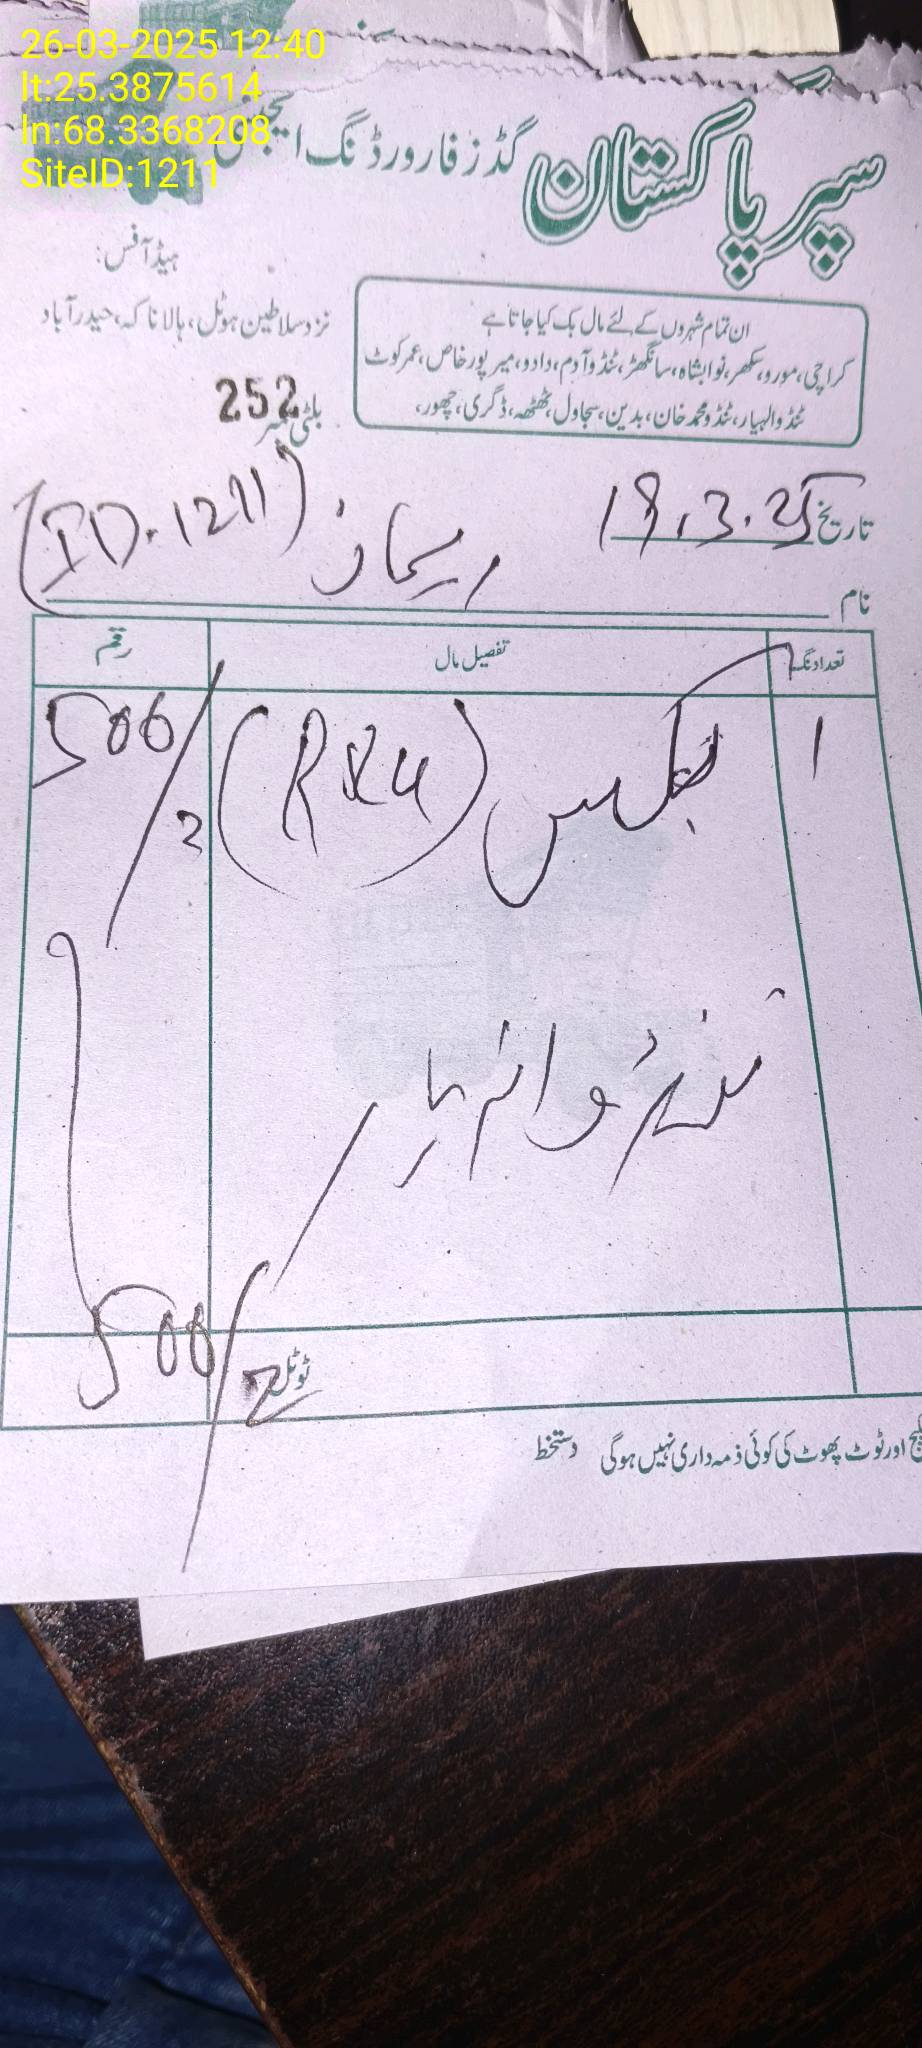 26-03-2025 12:40
lt:25.3875614
ln:68.3368208
SiteID:1211
سپر پاکستان گڈز فارورڈنگ ایجنسی
ہیڈ آفس:
نزد سلاطین ہوٹل، ہالا ناکہ، حیدرآباد
ان تمام شہروں کے لئے مال بک کیا جاتا ہے
کراچی، مورو، سکھر، نوابشاہ، سانگھڑ، ٹنڈو آدم، دادو، میرپور خاص، عمر کوٹ
ٹنڈوالہیار، ٹنڈو محمد خان، بدین، سجاول، ٹھٹھہ، ڈگری، چھور،
بلٹی نمبر 252
تاریخ 19.3.25
نام (ID.1211)
تعداد نگ تفصیل مال رقم
1 (RRU) 500/
500/ ٹوٹل
اور ٹوٹ پھوٹ کی کوئی ذمہ داری نہیں ہوگی دستخط